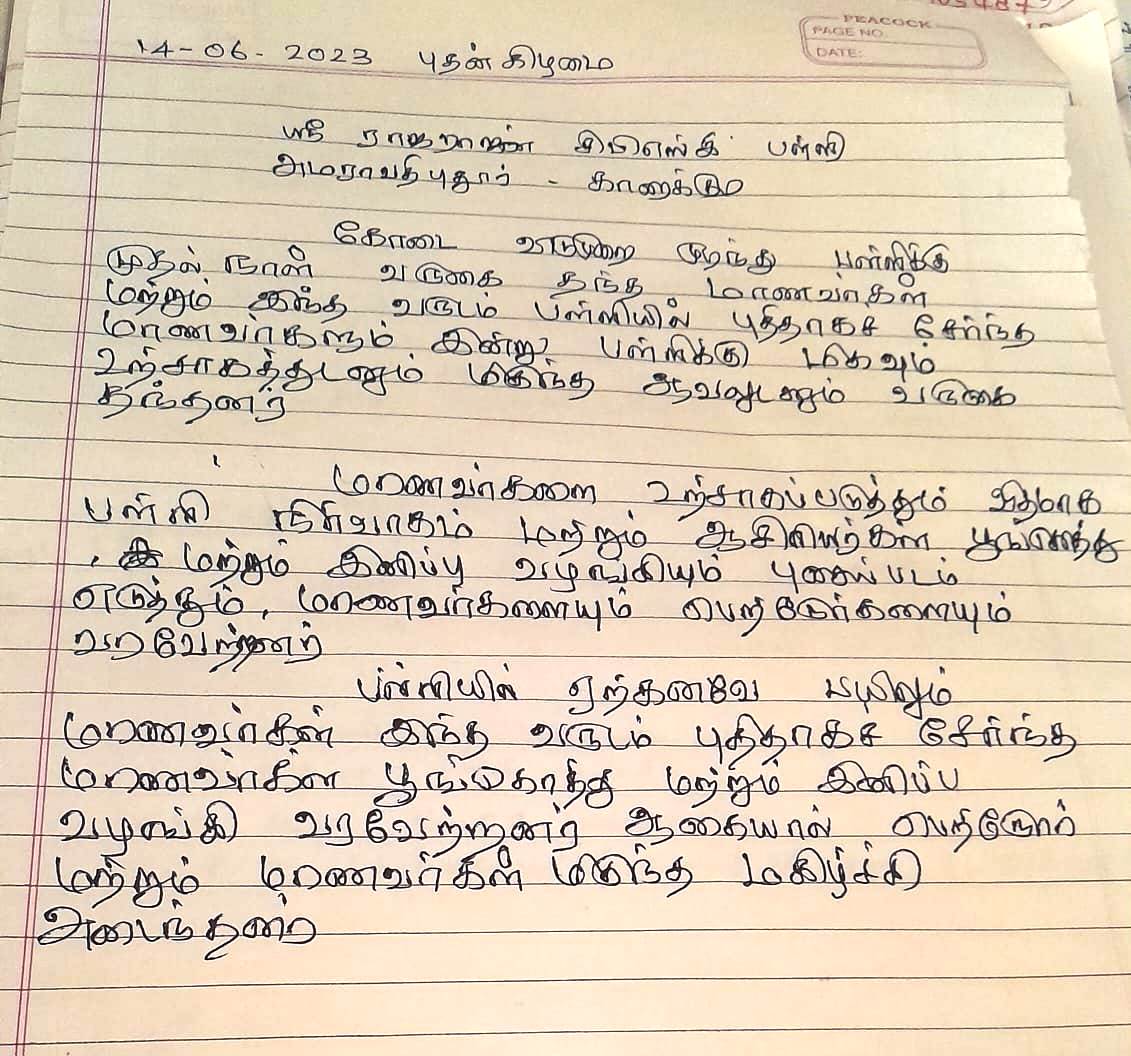 PEACOCK
PAGE NO.
DATE:
14-06-2023 புதன்கிழமை
ஸ்ரீ ராஜராஜன் சிபிஎஸ்இ பள்ளி
அமராவதிபுதூர் - காரைக்குடி
கோடை விடுமுறை முடிந்து பள்ளிக்கு
முதல் நாள் வருகை தந்த மாணவர்கள்
மற்றும் இந்த வருடம் பள்ளியில் புத்தாகச் சேர்ந்த
மாணவர்களும் இன்று பள்ளிக்கு மிகவும்
உற்சாகத்துடனும் மிகுந்த ஆவலுடனும் வருகை
தந்தனர்
மாணவர்களை உற்சாகப்படுத்தும் விதமாக
பள்ளி நிர்வாகம் மற்றும் ஆசிரியர்கள் பூங்கொத்து
மற்றும் இனிப்பு வழங்கியும் புகைப்படம்
எடுத்தும், மாணவர்களையும் பெற்றோர்களையும்
வரவேற்றனர்
பள்ளியில் ஏற்கனவே பயிலும்
மாணவர்கள் இந்த வருடம் புதிதாகச் சேர்ந்த
மாணவர்களை பூங்கொத்து மற்றும் இனிப்பு
வழங்கி வரவேற்றனர் ஆகையால் பெற்றோர்
மற்றும் மாணவர்கள் மிகுந்த மகிழ்ச்சி
அடைந்தனர்